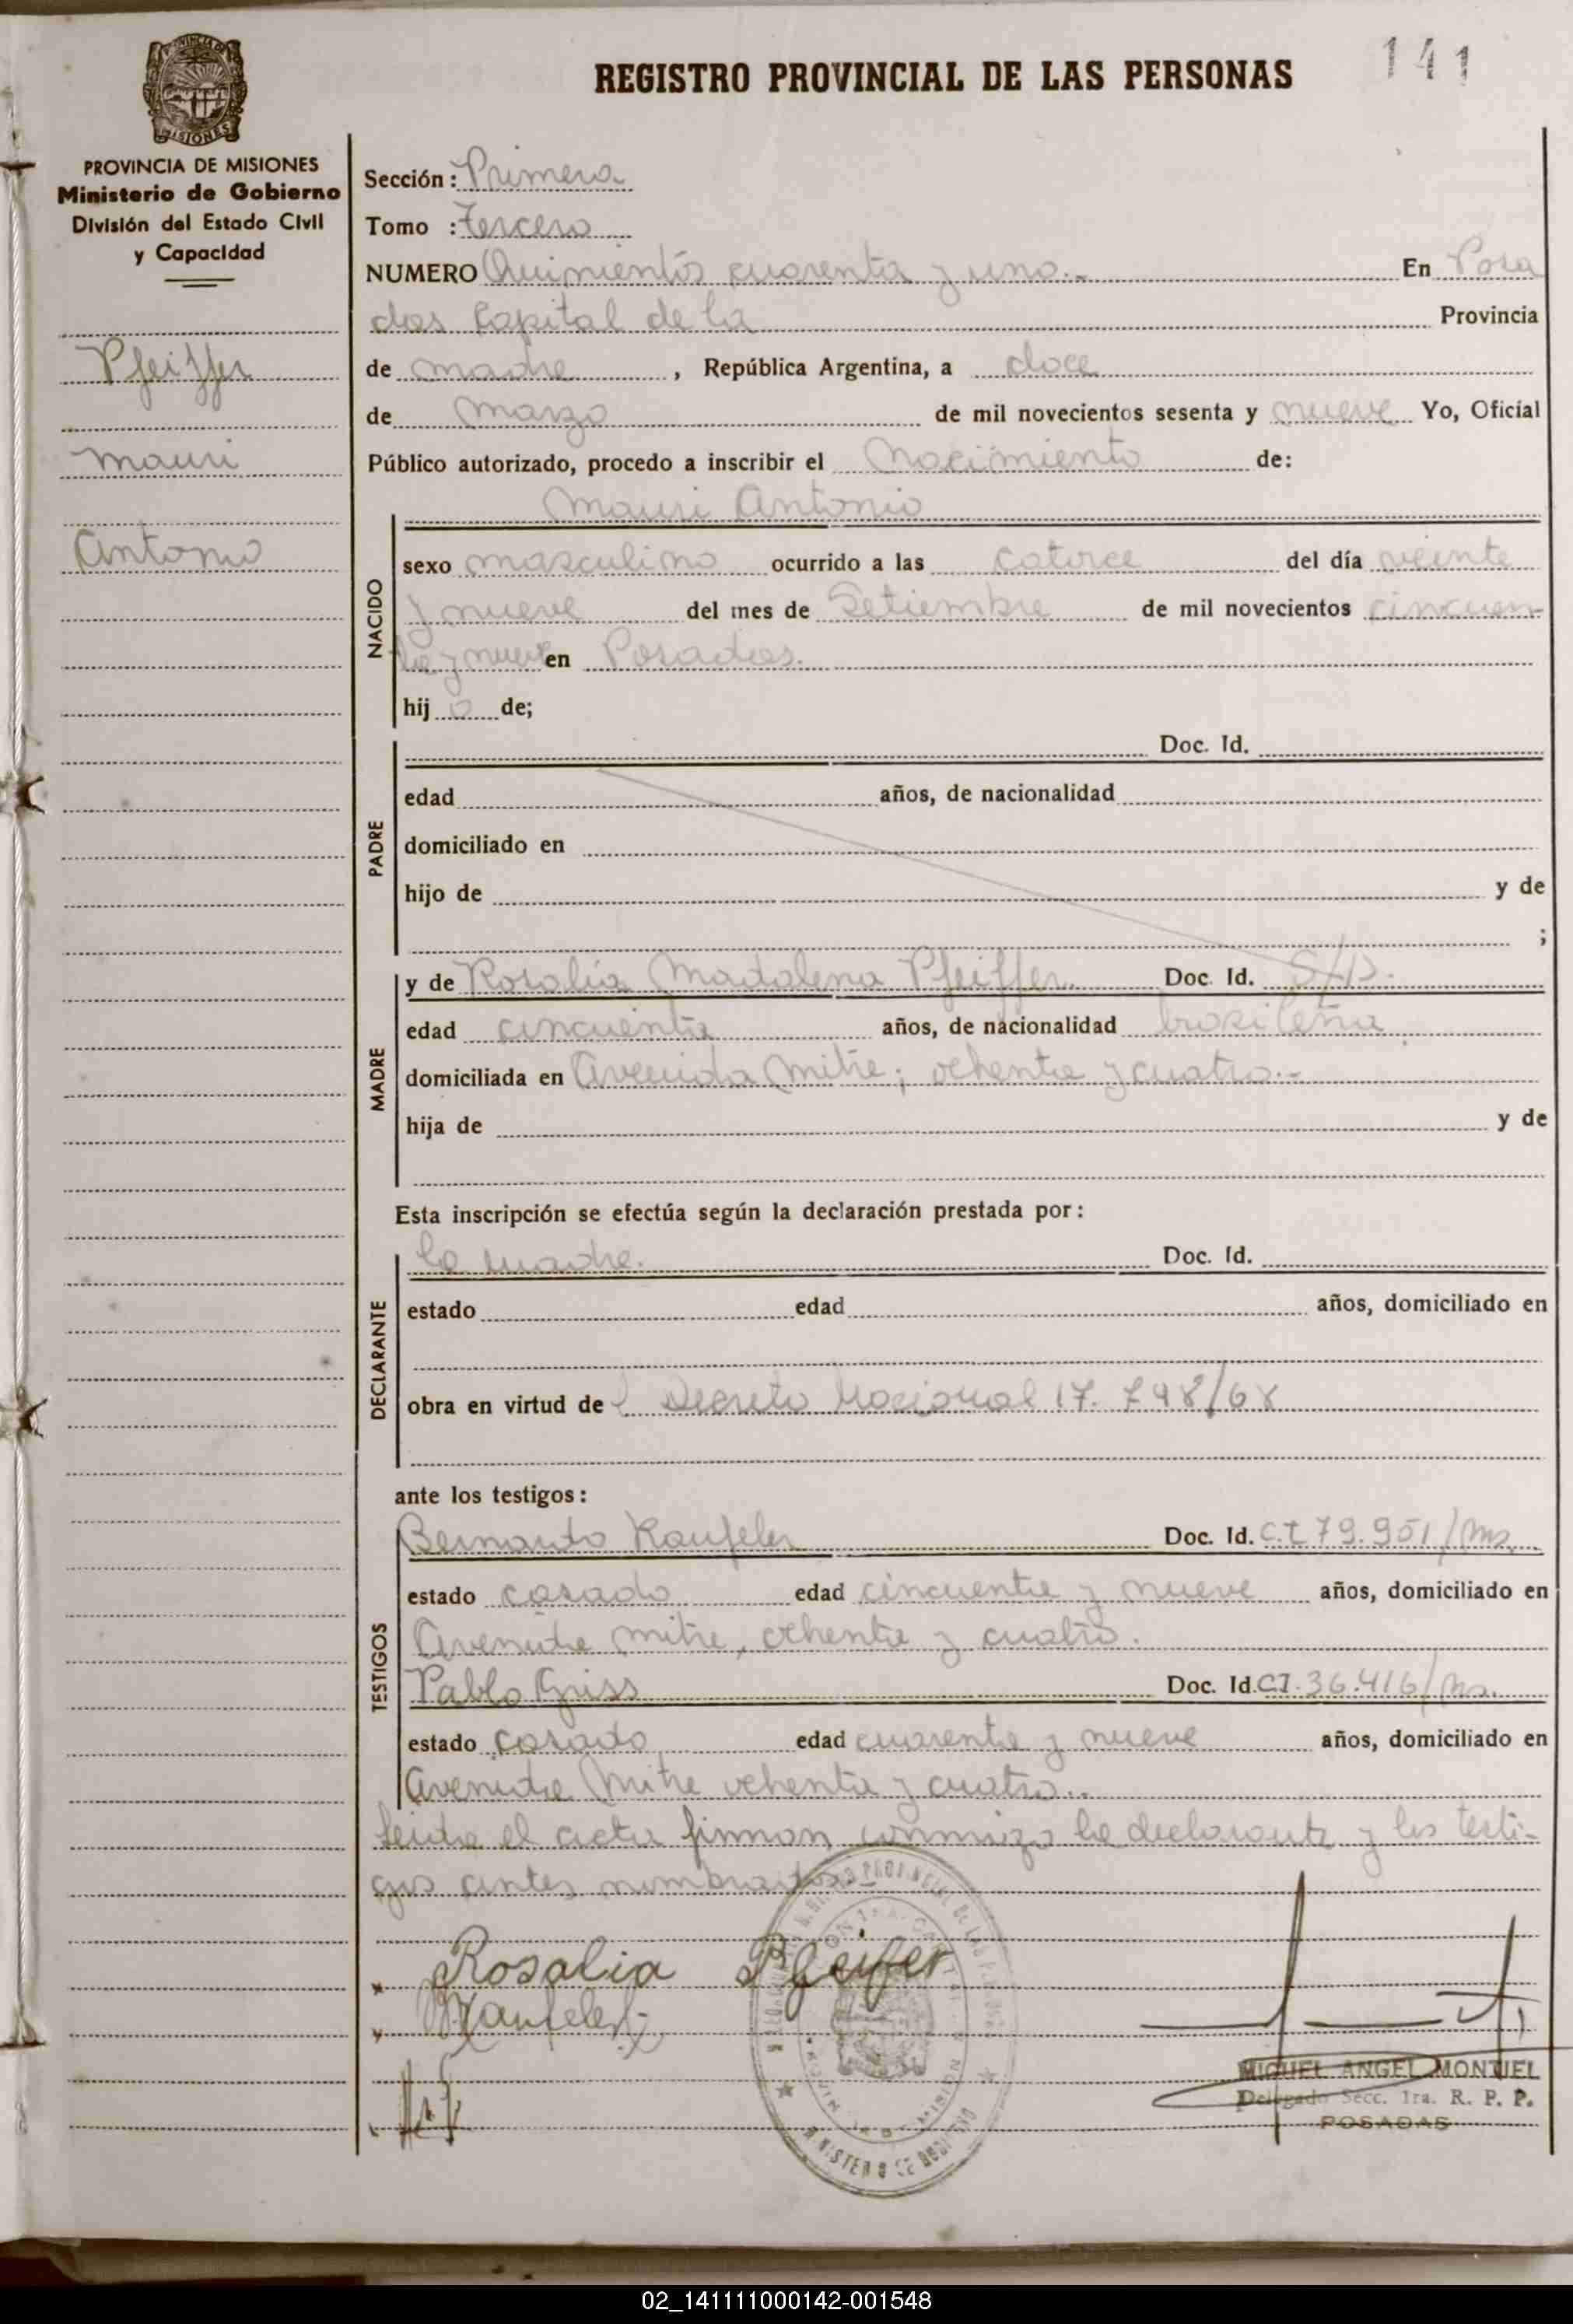 REGISTRO PROVINCIAL DE LAS PERSONAS
141
PROVINCIA DE MISIONES
PROVINCIA DE MISIONES
Ministerio de Gobierno
División del Estado Civil
y Capacidad
Pfeiffer
Mauri
Antonio
Sección: Primera
Tomo : Tercero
NUMERO Quinientos cuarenta y uno.- En Posa
das Capital de la Provincia
de madre, República Argentina, a doce
de Marzo de mil novecientos sesenta y nueve Yo, Oficial
Público autorizado, procedo a inscribir el Nacimiento de:
NACIDO
Mauri Antonio
sexo masculino ocurrido a las catorce del día veinte
y nueve del mes de Setiembre de mil novecientos cincuen-
ta y nueve en Posadas.
hij o de;
PADRE
Doc. Id.
edad años, de nacionalidad
domiciliado en
hijo de y de
;
MADRE
y de Rosalia Madalena Pfeiffer. Doc. Id. S/D.
edad cincuenta años, de nacionalidad brasileña
domiciliada en Avenida Mitre; ochenta y cuatro.-
hija de y de
Esta inscripción se efectúa según la declaración prestada por:
DECLARANTE
la madre. Doc. Id.
estado edad años, domiciliado en
obra en virtud de l Decreto Nacional 17.798/68
ante los testigos:
TESTIGOS
Bernardo Kaufeler Doc. Id. C.I 79.951/Ms.
estado casado edad cincuenta y nueve años, domiciliado en
Avenida Mitre, ochenta y cuatro.
Pablo Griss Doc. Id. CI.36.416/Ms.
estado casado edad cuarenta y nueve años, domiciliado en
Avenida Mitre ochenta y cuatro..
Leída el acta firman conmigo la declarante y los testi-
gos antes nombrados.
Rosalia Pfeifer
Kaufeler
MIGUEL ANGEL MONTIEL
Delegado Secc. 1ra. R. P. P.
POSADAS
02_141111000142-001548